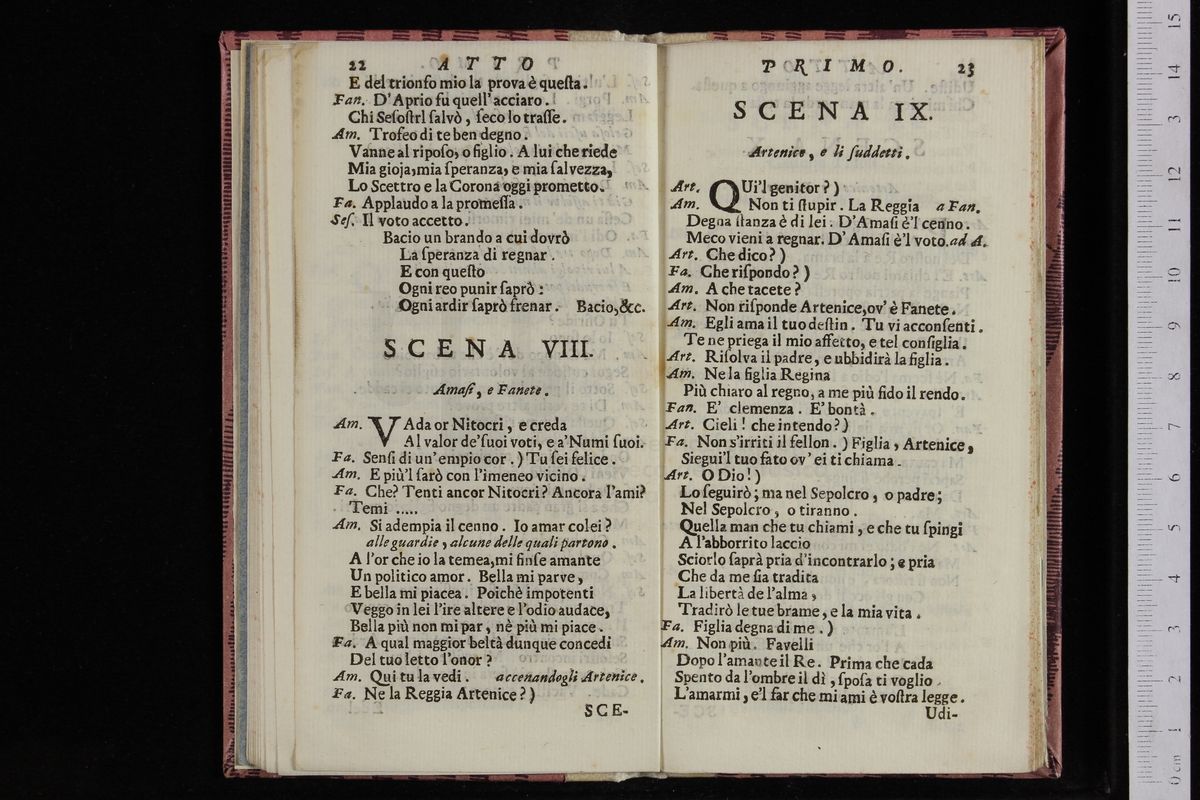 22 ATTO
E del trionfo mio la prova è queſta.
Fan. D'Aprio fu quell'acciaro.
Chi Seſoſtrl ſalvò, ſeco lo traſſe.
Am. Trofeo di te ben degno.
Vanne al ripoſo, o figlio. A lui che riede
Mia gioja, mia ſperanza, e mia ſalvezza,
Lo Scettro e la Corona oggi prometto.
Fa. Applaudo a la promeſſa.
Seſ. Il voto accetto.
Bacio un brando a cui dovrò
La ſperanza di regnar.
E con queſto
Ogni reo punir ſaprò:
Ogni ardir ſaprò frenar. Bacio,&c.
SCENA VIII.
Amaſi, e Fanete.
Am. VAda or Nitocri, e creda
Al valor de'ſuoi voti, e a'Numi ſuoi.
Fa. Senſi di un'empio cor.) Tu ſei felice.
Am. E più'l ſarò con l'imeneo vicino.
Fa. Che? Tenti ancor Nitocri? Ancora l'ami?
Temi .....
Am. Si adempia il cenno. Io amar colei?
alle guardie, alcune delle quali partono.
A l'or che io la temea, mi finſe amante
Un politico amor. Bella mi parve,
E bella mi piacea. Poichè impotenti
Veggo in lei l'ire altere e l'odio audace,
Bella più non mi par, nè più mi piace.
Fa. A qual maggior beltà dunque concedi
Del tuo letto l'onor?
Am. Qui tu la vedi. accenandogli Artenice.
Fa. Ne la Reggia Artenice?)
SCE-
PRIMO. 23
SCENA IX.
Artenice, e li ſuddetti.
Art. QUi'l genitor?)
Am. Non ti ſtupir. La Reggia a Fan.
Degna ſtanza è di lei. D'Amaſi è'l cenno.
Meco vieni a regnar. D'Amaſi è'l voto. ad A.
Art. Che dico?)
Fa. Che riſpondo?)
Am. A che tacete?
Art. Non riſponde Artenice, ov'è Fanete.
Am. Egli ama il tuo deſtin. Tu vi acconſenti.
Te ne priega il mio affetto, e tel conſiglia.
Art. Riſolva il padre, e ubbidirà la figlia.
Am. Ne la figlia Regina
Più chiaro al regno, a me più fido il rendo.
Fan. E' clemenza. E' bontà.
Art. Cieli! che intendo?)
Fa. Non s'irriti il fellon.) Figlia, Artenice,
Siegui'l tuo fato ov'ei ti chiama.
Art. O Dio!)
Lo ſeguirò; ma nel Sepolcro, o padre;
Nel Sepolcro, o tiranno.
Quella man che tu chiami, e che tu ſpingi
A l'abborrito laccio
Sciorlo ſaprà pria d'incontrarlo; e pria
Che da me ſia tradita
La libertà de l'alma,
Tradirò le tue brame, e la mia vita.
Fa. Figlia degna di me.)
Am. Non più. Favelli
Dopo l'amante il Re. Prima che cada
Spento da l'ombre il dì, ſpoſa ti voglio.
L'amarmi, e'l far che mi ami è voſtra legge.
Udi-